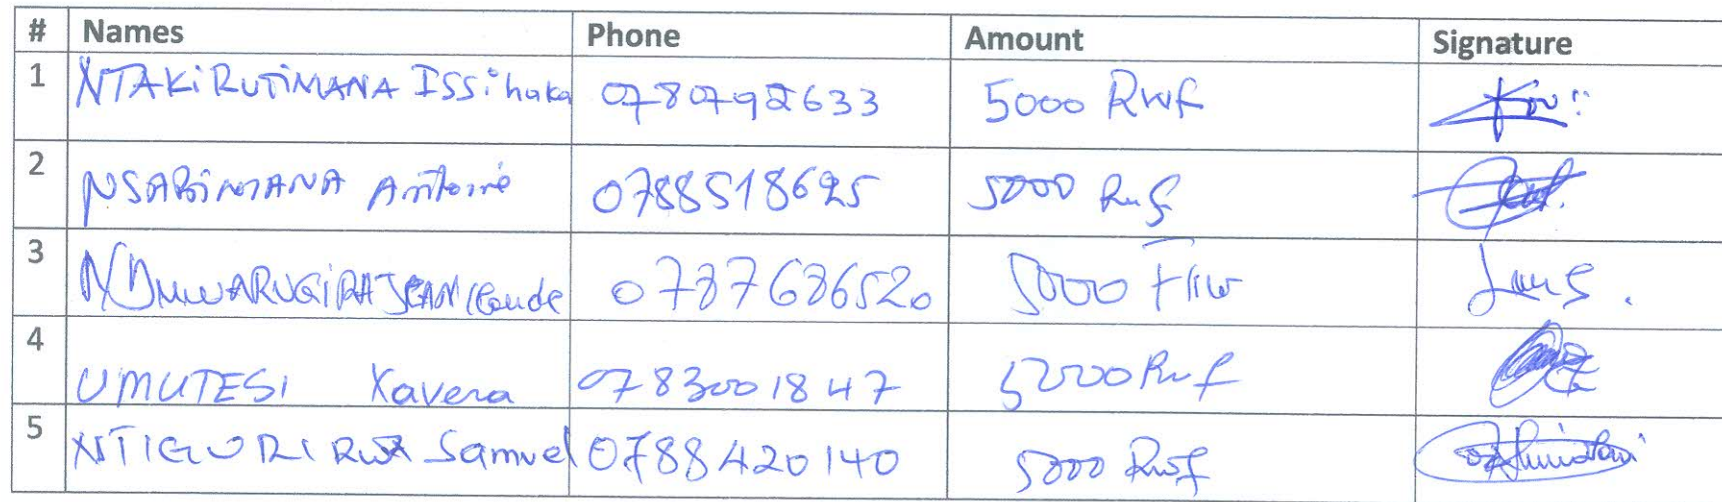 # Names Phone Amount Signature
1 NTAKiRUTiMANA ISSihaka 0780792633 5000 Rwf
2 NSABiMANA Antoine 0788518625 5000 Rwf
3 NDUWARUGIRA JEAN Claude 0787686520 5000 Frw
4 UMUTESI Xavera 0783001847 5000 Rwf
5 NTIGURIRWA Samuel 0788420140 5000 Rwf